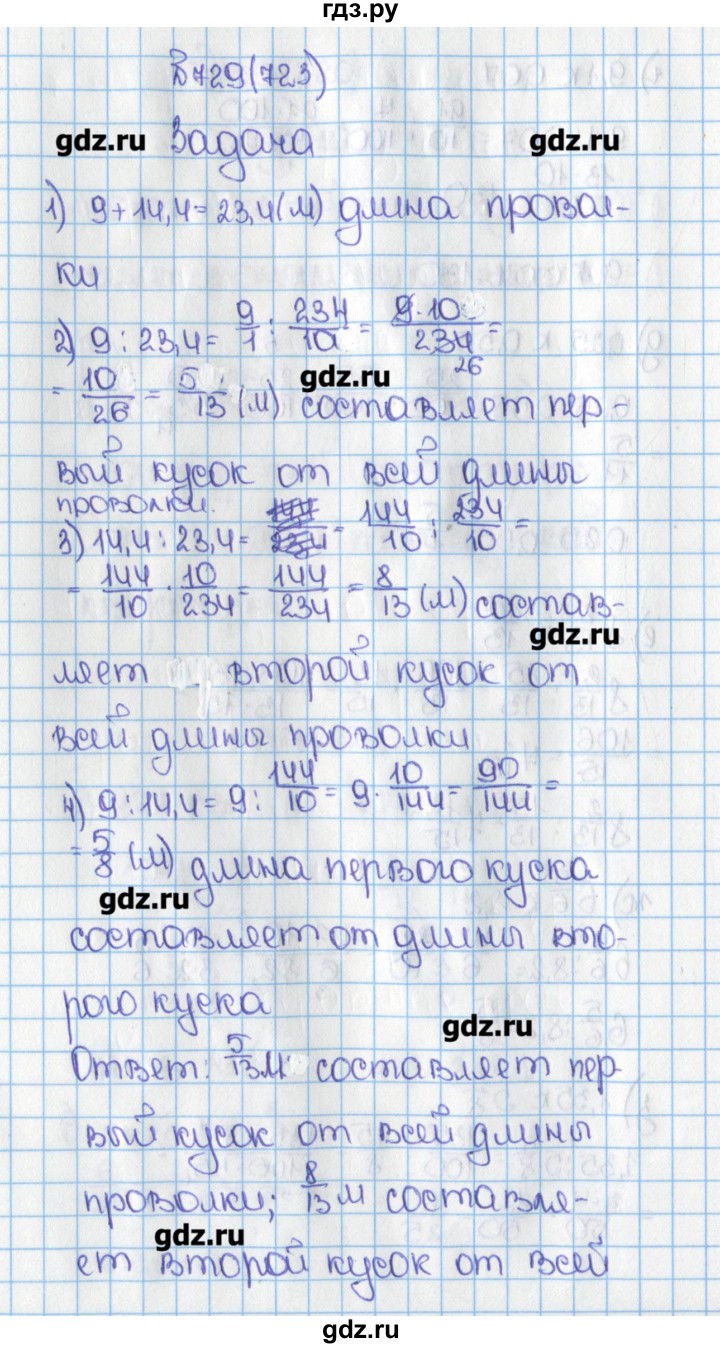 гдз.ру
№729(723)
gdz.ru Задача gdz.ru
1) 9+14,4=23,4(м) длина провол-
ки
2) 9:23,4= 9/1 : 234/10 = 9·10/234 =
26
= 10/26 = 5/13 (м) составляет пер-
gdz.ru
вый кусок от всей длины
проволки.
3) 14,4:23,4= = 144/10 : 234/10 =
= 144/10 · 10/234 = 144/234 = 8/13 (м) состав-
gdz.ru
ляет второй кусок от
всей длины проволки
4) 9:14,4= 9: 144/10 = 9· 10/144 = 90/144 =
= 5/8 (м) длина первого куска
gdz.ru
составляет от длины вто-
рого куска
gdz.ru
Ответ: 5/13 м составляет пер-
вый кусок от всей длины
проволки; 8/13 м составля-
gdz.ru
ет второй кусок от всей
gdz.ru